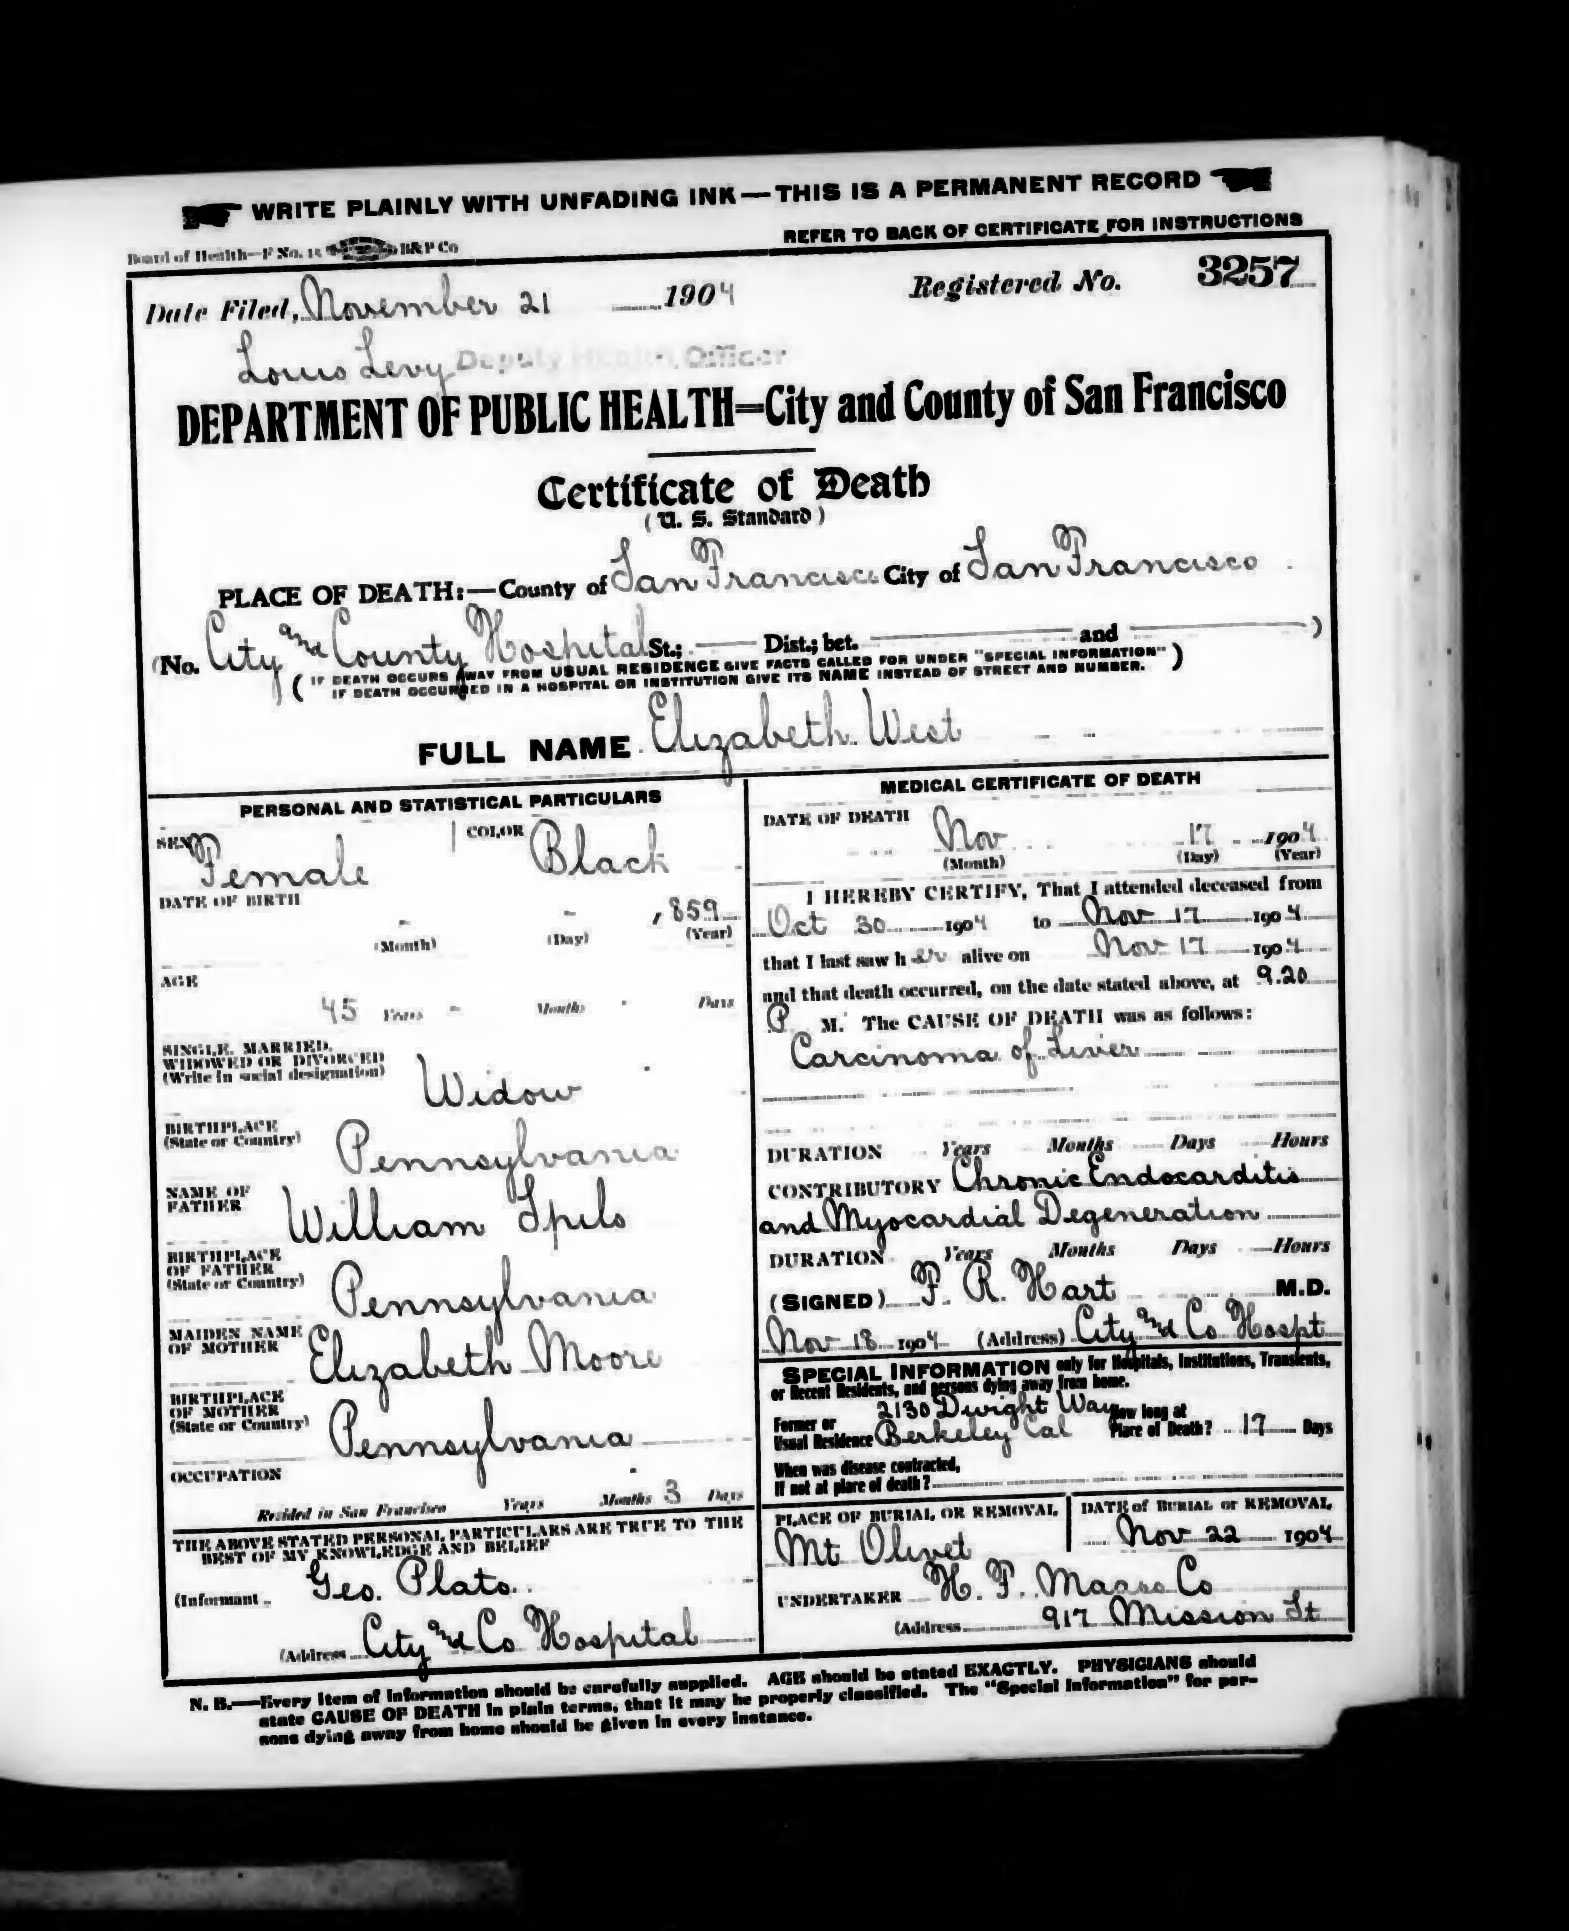 WRITE PLAINLY WITH UNFADING INK—THIS IS A PERMANENT RECORD
Board of Health—F No. 15 B&P Co
REFER TO BACK OF CERTIFICATE FOR INSTRUCTIONS
Date Filed, November 21 1904 Registered No. 3257
Louis Levy Deputy Health Officer
DEPARTMENT OF PUBLIC HEALTH=City and County of San Francisco
Certificate of Death
(U. S. Standard)
PLACE OF DEATH:—County of San Francisco City of San Francisco
(No. City and County Hospital St.; Dist.; bet. and )
( IF DEATH OCCURS AWAY FROM USUAL RESIDENCE GIVE FACTS CALLED FOR UNDER "SPECIAL INFORMATION" )
IF DEATH OCCURRED IN A HOSPITAL OR INSTITUTION GIVE ITS NAME INSTEAD OF STREET AND NUMBER.
FULL NAME Elizabeth West
PERSONAL AND STATISTICAL PARTICULARS
SEX Female COLOR Black
DATE OF BIRTH
- - , 859
(Month) (Day) (Year)
AGE
45 Years - Months Days
SINGLE, MARRIED,
WIDOWED OR DIVORCED
(Write in social designation) Widow
BIRTHPLACE
(State or Country) Pennsylvania
NAME OF
FATHER William Spils
BIRTHPLACE
OF FATHER
(State or Country) Pennsylvania
MAIDEN NAME
OF MOTHER Elizabeth Moore
BIRTHPLACE
OF MOTHER
(State or Country) Pennsylvania
OCCUPATION
Resided in San Francisco Years Months 3 Days
THE ABOVE STATED PERSONAL PARTICULARS ARE TRUE TO THE
BEST OF MY KNOWLEDGE AND BELIEF
(Informant Geo. Plato
(Address City and Co Hospital
MEDICAL CERTIFICATE OF DEATH
DATE OF DEATH Nov 17 1904
(Month) (Day) (Year)
I HEREBY CERTIFY, That I attended deceased from
Oct 30 1904 to Nov 17 1904
that I last saw h er alive on Nov 17 1904
and that death occurred, on the date stated above, at 9.20
P M. The CAUSE OF DEATH was as follows:
Carcinoma of Liver
DURATION Years Months Days Hours
CONTRIBUTORY Chronic Endocarditis
and Myocardial Degeneration
DURATION Years Months Days Hours
(SIGNED) F. R. Hart M.D.
Nov 18 1904 (Address) City and Co Hospt
SPECIAL INFORMATION only for Hospitals, Institutions, Transients,
or Recent Residents, and persons dying away from home.
Former or 2130 Dwight Way How long at
Usual Residence Berkeley Cal Place of Death? 17 Days
When was disease contracted,
If not at place of death?
PLACE OF BURIAL OR REMOVAL DATE of BURIAL or REMOVAL
Mt Olivet Nov 22 1904
UNDERTAKER H. F. Maass Co
(Address 917 Mission St
N. B.—Every item of information should be carefully supplied. AGE should be stated EXACTLY. PHYSICIANS should
state CAUSE OF DEATH in plain terms, that it may be properly classified. The "Special Information" for per-
sons dying away from home should be given in every instance.